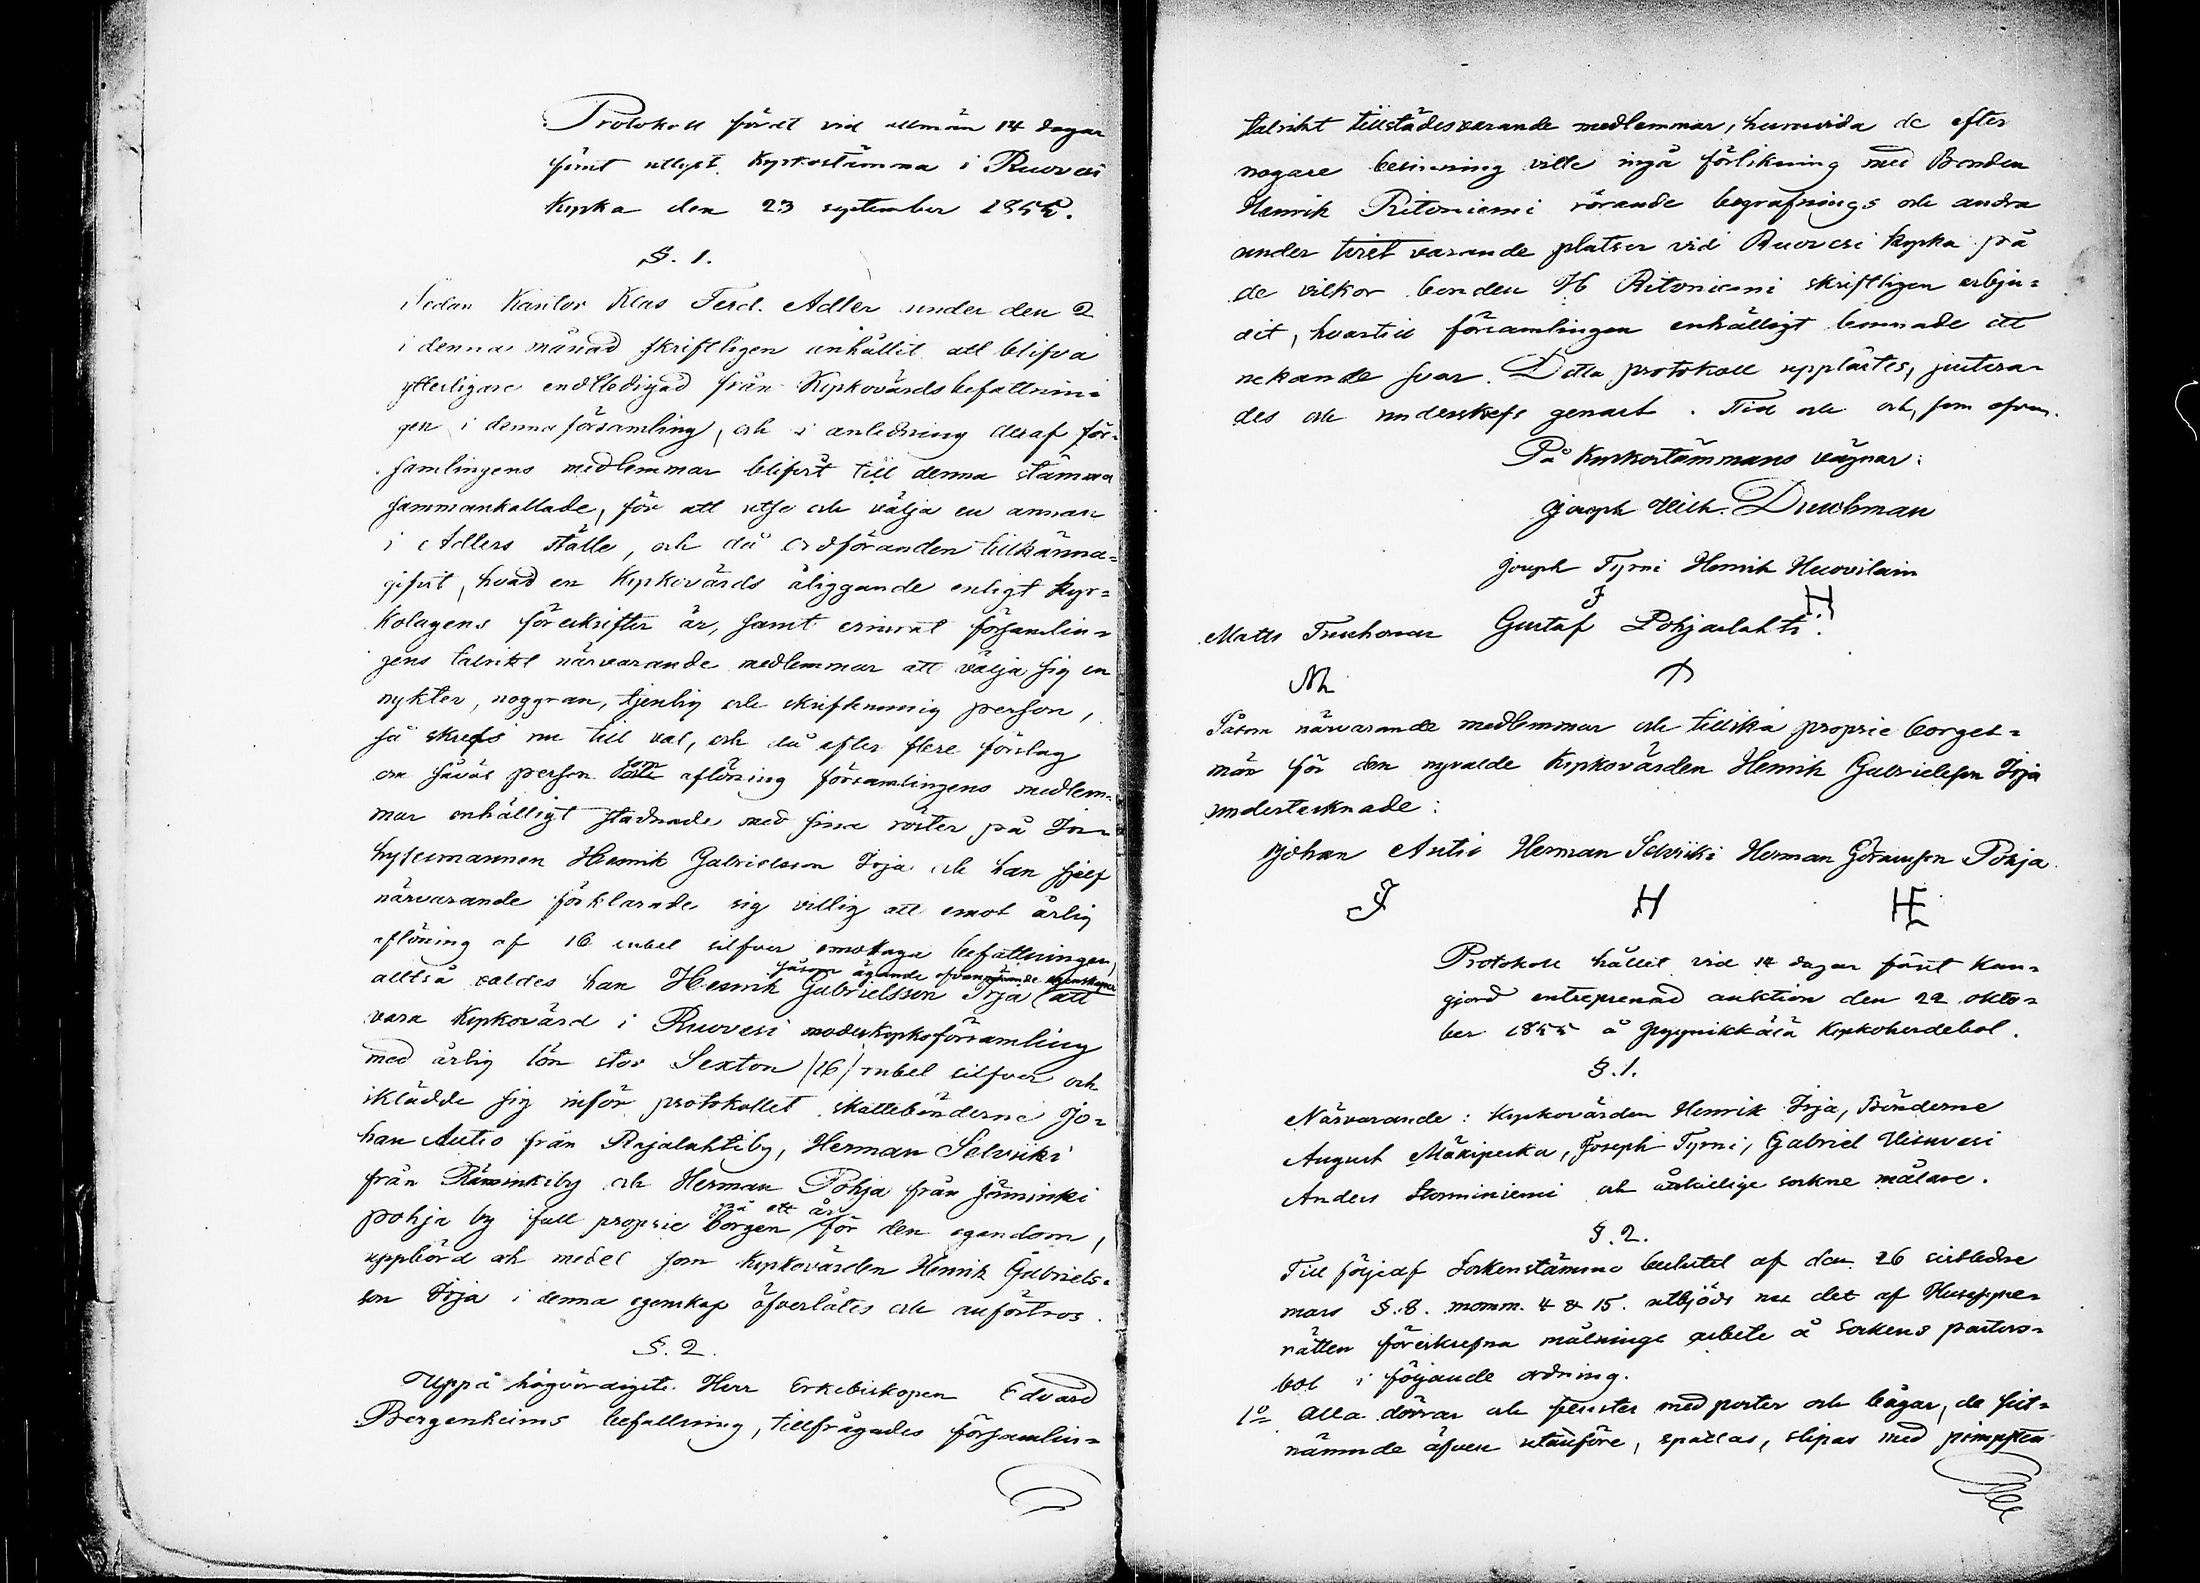 Protokoll fördt vid allmän 14 dagar
förut utlyst Kyrkostämma i Ruovesi
Kyrka den 23 september 1855.
§. 1.
Sedan Kantor Klas Ferd. Adler under den 2
i denna månad skriftligen anhållit att blifva
ytterligare entledigad från Kyrkovärdsbefattnin=
gen i denna församling, och i anledning deraf för=
samlingens medlemmar blifvit till denna stämma
sammankallade, för att utse och välja en annan
i Adlers ställe, och då Ordföranden tillkänna=
gifvit, hvad en Kyrkovärds åliggande enligt Kyr=
kolagens föreskrifter är, samt erinrat församlin=
gens talrikt närvarande medlemmar att välja sig en
nykter, noggran, tjenlig och skrifkunnig person,
så skrefs nu till val, och då efter flere förslag
om såväl person som aflöning församlingens medlem=
mar enhälligt stadnade med sina röster på In=
hysesmannen Henrik Gabrielsson Irja och han sjelf
närvarande förklarade sig villig att emot årlig
aflöning af 16 rubel silfver emottaga befattningen,
såsom ägande ofvannämnde egenskaper
alltså valdes han Henrik Gabrielsson Irja att
vara Kyrkovärd i Ruovesi moderkyrkoförsamling
med årlig lön stor Sexton /16/ rubel silfver och
iklädde sig inför protokollet skattebönderne Jo=
han Autio från Rajalahtiby, Herman Selviiki
från Räminkiby och Herman Pohja från Jäminki
på ett år
pohja by full proprie borgen för den egendom,
uppbörd och medel som Kyrkovärden Henrik Gabriels=
son Irja i denna egenskap öfverlåtes och anförtros.
§. 2.
Uppå högvördigste Herr Erkebiskopen Edvard
Bergenheims befallning, tillfrågades församlin=
talrikt tillstädesvarande medlemmar, huruvida de efter
nogare besinning ville ingå förlikning med Bonden
Henrik Ritoniemi rörande begrafnings och andra
under tvist varande platser vid Ruovesi kyrka på
de vilkor bonden H Ritoniemi skriftligen erbju=
dit, hvartill församlingen enhälligt lemnade ett
nekande svar. Detta protokoll upplästes, justera=
des och underskrefs genast. Tid och ort, som ofvan.
På Kyrkostämmans vägnar:
Joseph Wilh. Durchman
Joseph Tyrni Henrik Huovilain
J H
Matts Truhonen Gustaf Pohjaslahti.
Såsom närvarande medlemmar och tillika proprie borges=
män för den nyvalde Kyrkovärden Henrik Gabrielsson Irja
undertecknade:
Johan Autio Herman Selviiki Herman Göransson Pohja
J H HE
Protokoll hållet vid 14 dagar förut kun=
gjord entreprenad auktion den 22 okto=
ber 1855 å Pyynikkälä Kyrkoherdebol.
§. 1.
Närvarande: Kyrkovärden Henrik Irja, Bönderne
August Mäkipeska, Joseph Tyrni, Gabriel Visuvesi
Anders Storminiemi och åtskillige sockne målare.
§. 2.
Till följe af Sockenstämmo beslutet af den 26 sistledne
mars §. 8. momm. 4 & 15. utbjöds nu det af Husesyne=
rätten föreskrefna målnings arbete å Sockens pastors=
bol i följande ordning.
1º Alla dörrar och fenster med poster och bågar, de sist=
nämnde äfven utanföre, spacklas, slipas med pimpsten